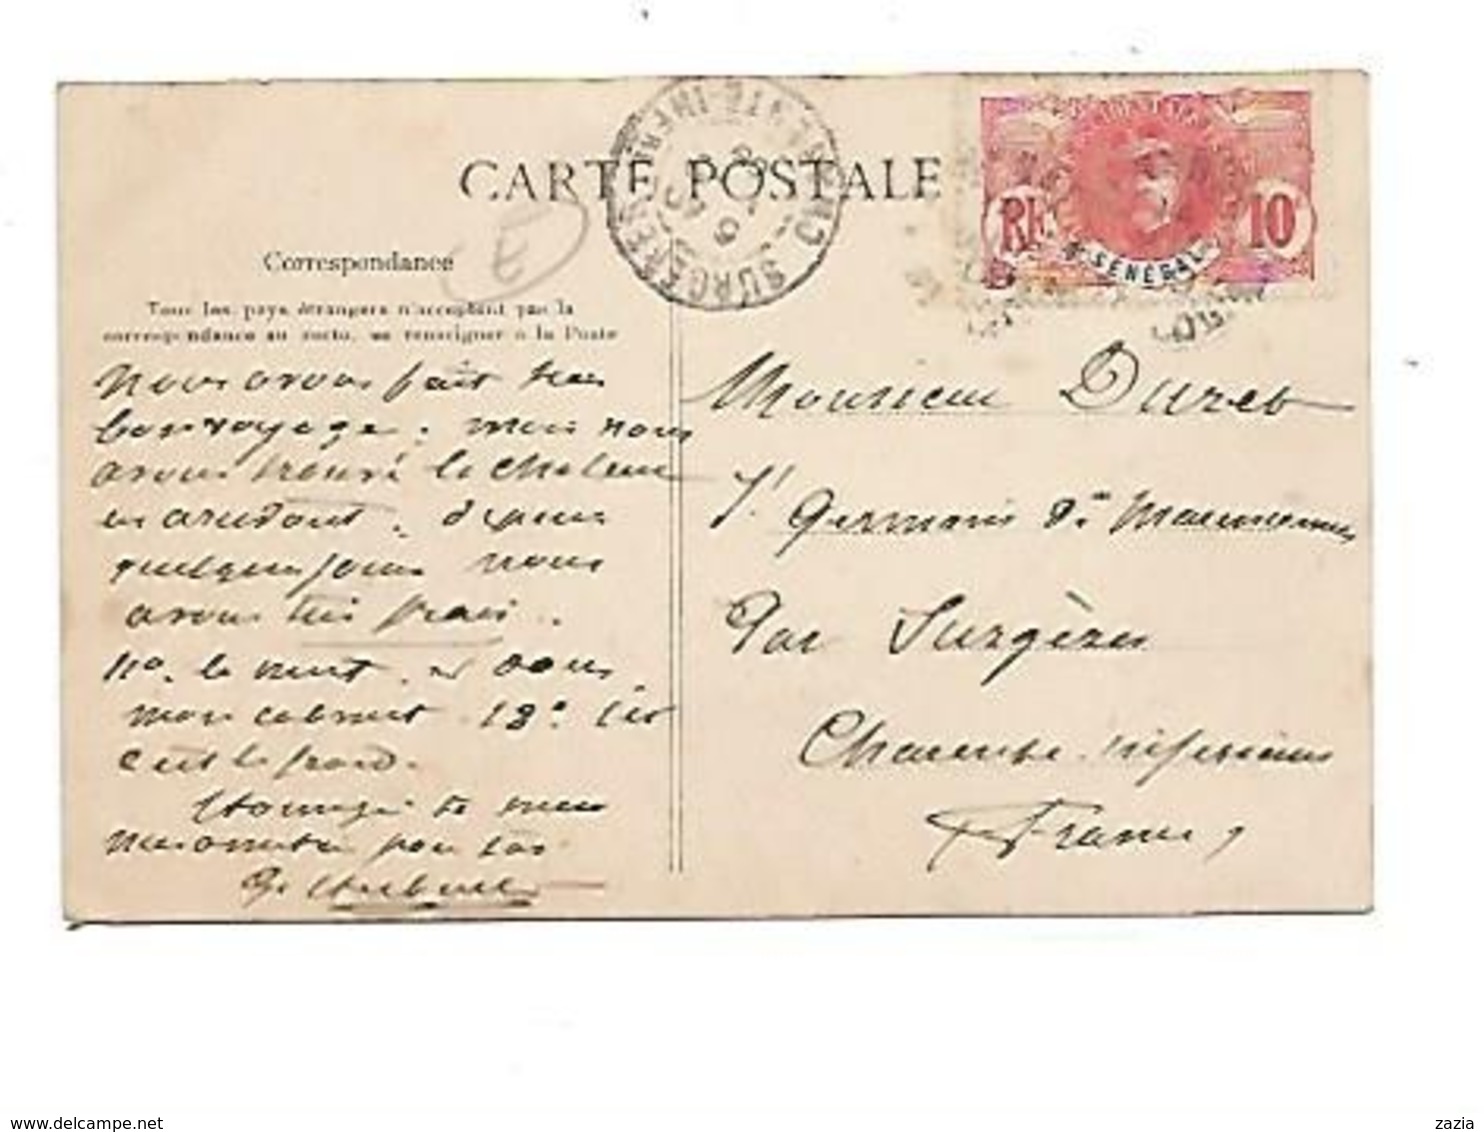 CARTE POSTALE
Correspondance
Tous les pays étrangers n'acceptent pas la
correspondance au recto, se renseigner à la Poste
SURGÈRES CHARENTE-INFRE
RF 10
SÉNÉGAL
Nous avons fait très
bon voyage; mais nous
avons trouvé la chaleur
en arrivant. depuis
quelques jours nous
avons très frais.
11° la nuit. et dans
mon cabinet 18° ici
c'est le froid.
Monsieur Duret
St Germain de Marencennes
Par Surgères
Charente-inférieure
France
delcampe.net
zazia